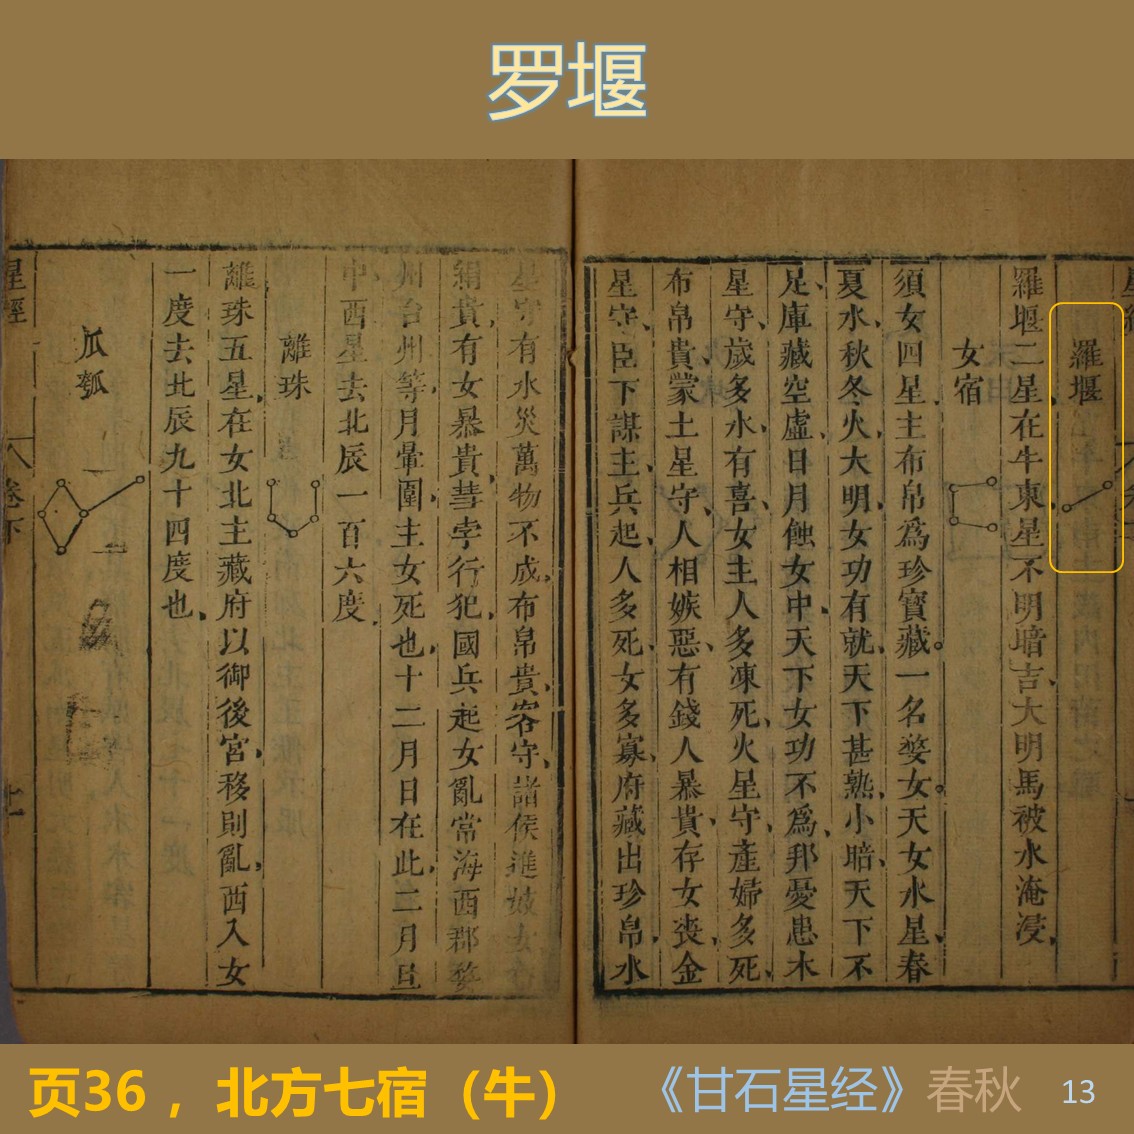 罗堰
星經
羅堰
羅堰二星在牛東星不明暗吉大明馬被水淹浸
女宿
須女四星主布帛爲珍寶藏一名婺女天女水星春
夏水秋冬火大明女功有就天下甚熟小暗天下不
足庫藏空虛日月蝕女中天下女功不爲邦憂患木
星守歲多水有喜女主人多凍死火星守產婦多死
布帛貴蒙土星守人相嫉惡有錢人暴貴存女喪金
星守臣下謀主兵起人多死女多寡府藏出珍帛水
星守有水災萬物不成布帛貴客守諸侯進妓女
絹貴有女暴貴彗孛行犯國兵起女亂常海西郡婺
州台州等月暈圍主女死也十二月日在此二月旦
中西星去北辰一百六度
離珠
離珠五星在女北主藏府以御後宮移則亂西入女
一度去北辰九十四度也
瓜瓠
星經
卷下
页36 ，北方七宿（牛）
《甘石星经》春秋
13